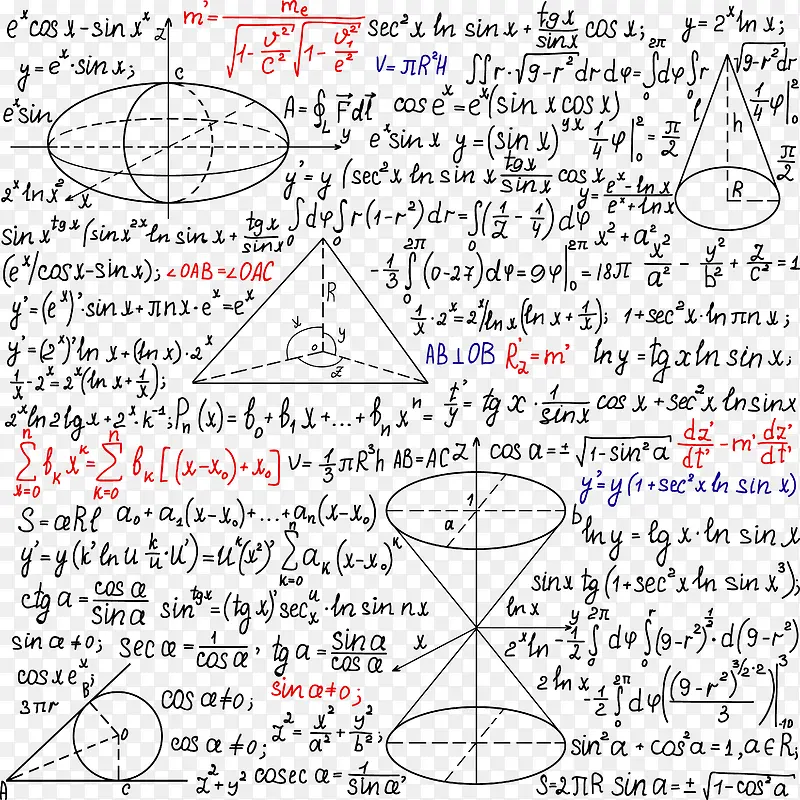 eˣcos x – sin xˣ
z
m' = mₑ / √(1 - v²/c²) √(1 - v₁²/e²)
sec²x ln sin x + tg x / sin x cos x;
y = 2ˣ ln x;
y = eˣ · sin x;
c
V = πR²H
∫∫ r · √(9-r²) dr dφ = ∫₀^2π dφ ∫₀ r √(9-r²) dr
eˣ sin
A = ∮_L F⃗ dl⃗
cos eˣ = eˣ (sin x cos x)
l
h
1/4 φ|₀
y
eˣ sin x y = (sin x)^yx 1/4 φ|₀² = π/2
π/2
2ˣ ln x²
x
y' = y (sec²x ln sin x tg x / sin x cos x
y = (eˣ - ln x) / (eˣ + ln x)
R
sin x^tg x (sin x^2x ln sin x + tg x / sin x
∫₀ dφ ∫₀ r (1-r²) dr = ∫₀ (1/2 - 1/4) dφ
x² + a²
(eˣ/cos x – sin x);
∠OAB = ∠OAC
R
-1/3 ∫₀^2π (0-27) dφ = 9φ|₀^2π = 18π
x²/a² - y²/b² + z/c² = 1
y' = (eˣ)' · sin x + π n x · eˣ = eˣ
1/x · 2ˣ = 2ˣ/ln x (ln x + 1/x);
1 + sec²x · ln π n x;
y' = (2ˣ)' ln x + (ln x) · 2ˣ
x
o
y
z
AB ⊥ OB
R₂' = m'
ln y = tg x ln sin x;
1/x - 2ˣ = 2ˣ (ln x + 1/x);
2ˣ ln 2 lg x + 2ˣ · k⁻¹;
Pₙ (x) = b₀ + b₁ x + ... + bₙ xⁿ =
t'/y = tg x · 1/sin x cos x + sec²x ln sin x
∑_{x=0}^n b_k x^k = ∑_{k=0}^n b_k [(x-x₀) + x₀]
V = 1/3 πR³h
AB = AC
z
cos a = ± √(1 - sin²a)
dz'/dt' - m' dz'/dt'
y' = y (1 + sec²x ln sin x)
S = æRl
a₀ + a₁ (x-x₀) + ... + aₙ (x-x₀)
1
a
b
ln y = lg x · ln sin x
y' = y (k' ln u k/u · u') = u^k (x²)'
∑_{k=0}^n a_k (x-x₀)^k
sin x tg (1 + sec²x ln sin x³);
ctg a = cos æ / sin a
sin^tg x = (tg x)' sec_x^u · ln sin nx
ln x
y
sin æ ≠ 0;
sec æ = 1 / cos æ,
tg a = sin a / cos æ
x
2ˣ ln
-1/2 ∫₀^2π dφ ∫₀^r (9-r²)^1/2 · d(9-r²)
cos x eˣ
3πr
B
cos æ ≠ 0;
sin æ ≠ 0;
2 ln x
-1/2 ∫₀^2π dφ ((9-r²)^3/2·2 / 3)|³₋₁₀
O
cos æ ≠ 0;
z² = x²/a² + y²/b²;
sin²a + cos²a = 1, a ∈ R;
A
C
z² + y²
cosec æ = 1 / sin æ,
S = 2πR
sin a = ± √(1 - cos²a)